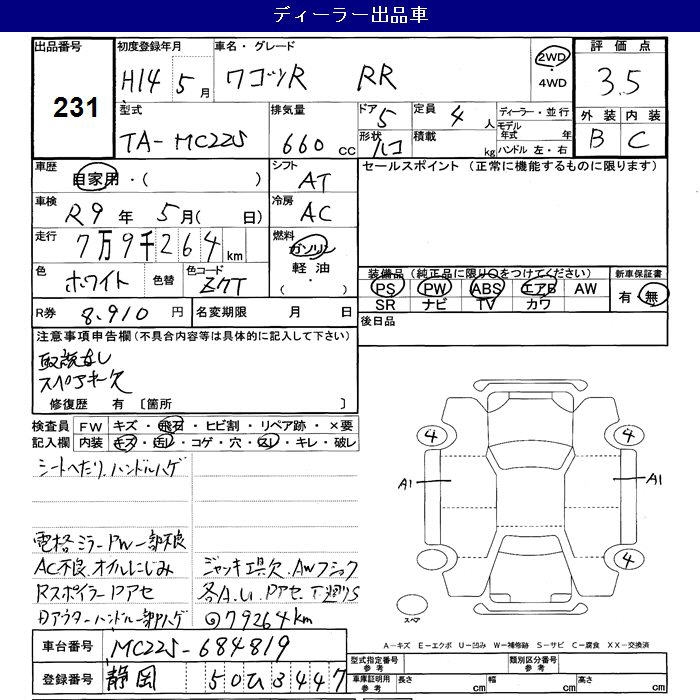 ディーラー出品車
出品番号 初度登録年月 車名・グレード 評価点
231 H14 5月 ワゴンR RR 2WD・4WD 3.5
型式 排気量 ドア 5 定員 4人 ディーラー・並行 外装 内装
TA-MC22S 660cc 形状 ハコ 積載 kg モデル年式 年 B C
ハンドル 左・右
車歴 自家用・( ) シフト AT セールスポイント (正常に機能するものに限ります)
車検 R9年 5月( 日) 冷房 AC
走行 7万9千264km 燃料 ガソリン
軽油
( ・ )
色 ホワイト 色替 色コード Z7T
装備品(純正品に限り○をつけてください) 新車保証書
PS PW ABS エアB AW 有・無
SR ナビ TV カワ
R券 8.910円 名変期限 月 日
後日品
注意事項申告欄(不具合内容等は具体的に記入して下さい)
取説なし
スペアキー欠
修復歴 有 〔箇所 〕
検査員記入欄 FW キズ・飛石・ヒビ割・リペア跡・×要
内装 キズ・汚レ・コゲ・穴・スレ・キレ・破レ
シートへたり、ハンドルハゲ
電格ミラーPW一部不良
AC不良、オイルにじみ ジャッキ工具欠、AWフシック
Rスポイラー Pアセ 各A.U.Pアセ 下廻りS
Dアウターハンドル一部Pハゲ ◎79264km
4 4
A1 A1
4
スペア
A-キズ E-エクボ U-凹み W-補修跡 S-サビ C-腐食 XX-交換済
車台番号 MC22S-684819
登録番号 静岡 50ひ3447
型式指定番号 参考 類別区分番号 参考
車庫証明用 参考 長さ cm 幅 cm 高さ cm